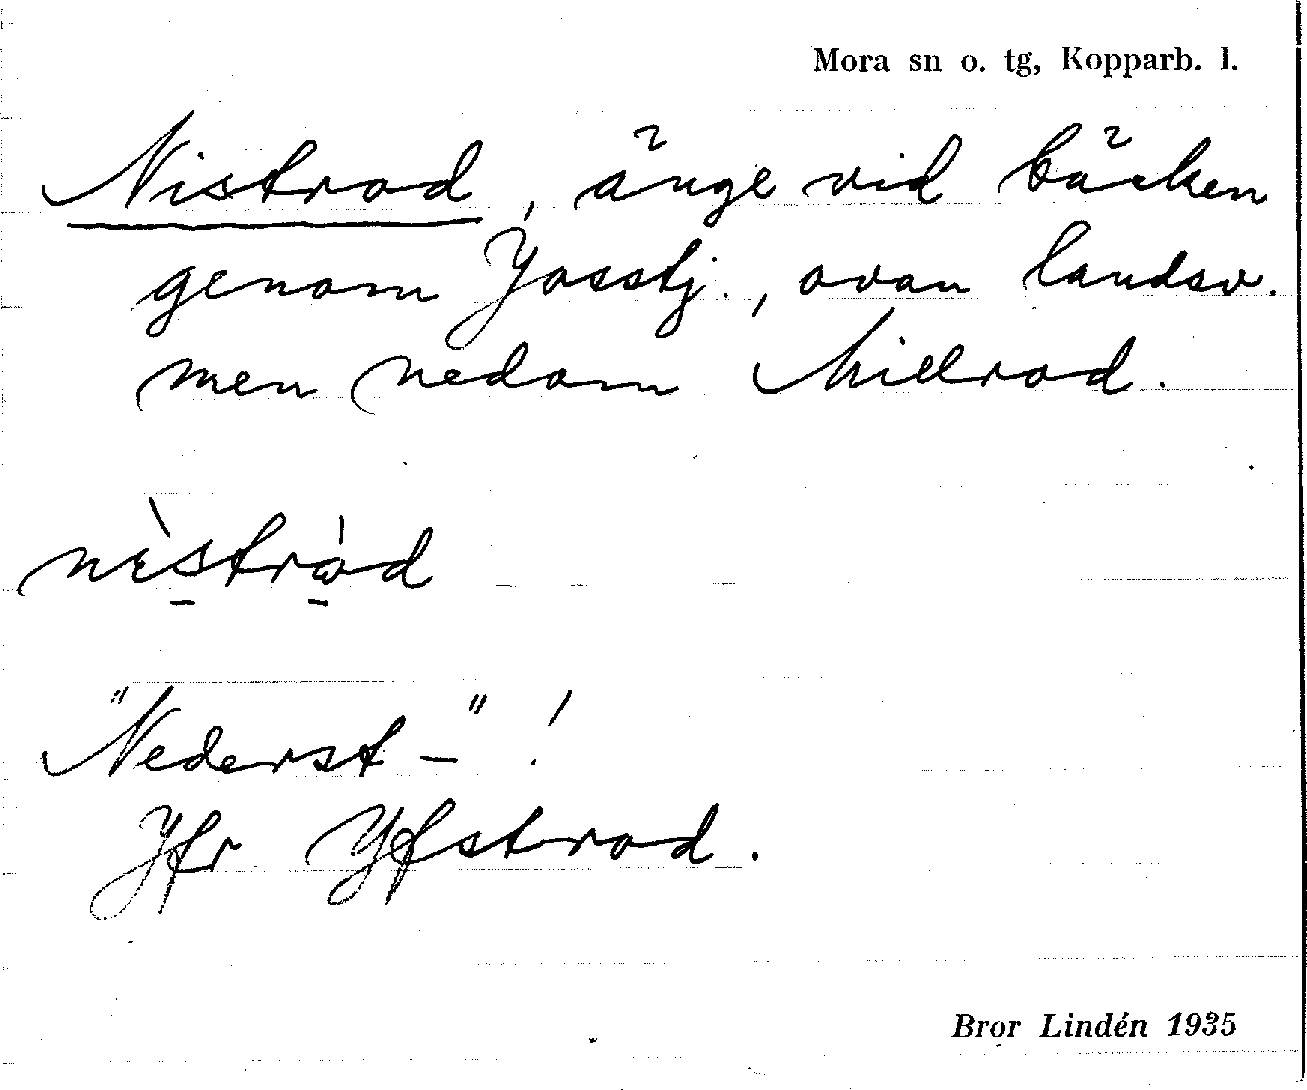 Mora sn o. tg, Kopparb. l.
Nistrod, änge vid bäcken
genom Josstj., ovan landsv.
men nedom Millrod.
"Nederst-"!
Jfr Yfstrod.
Bror Lindén 1935